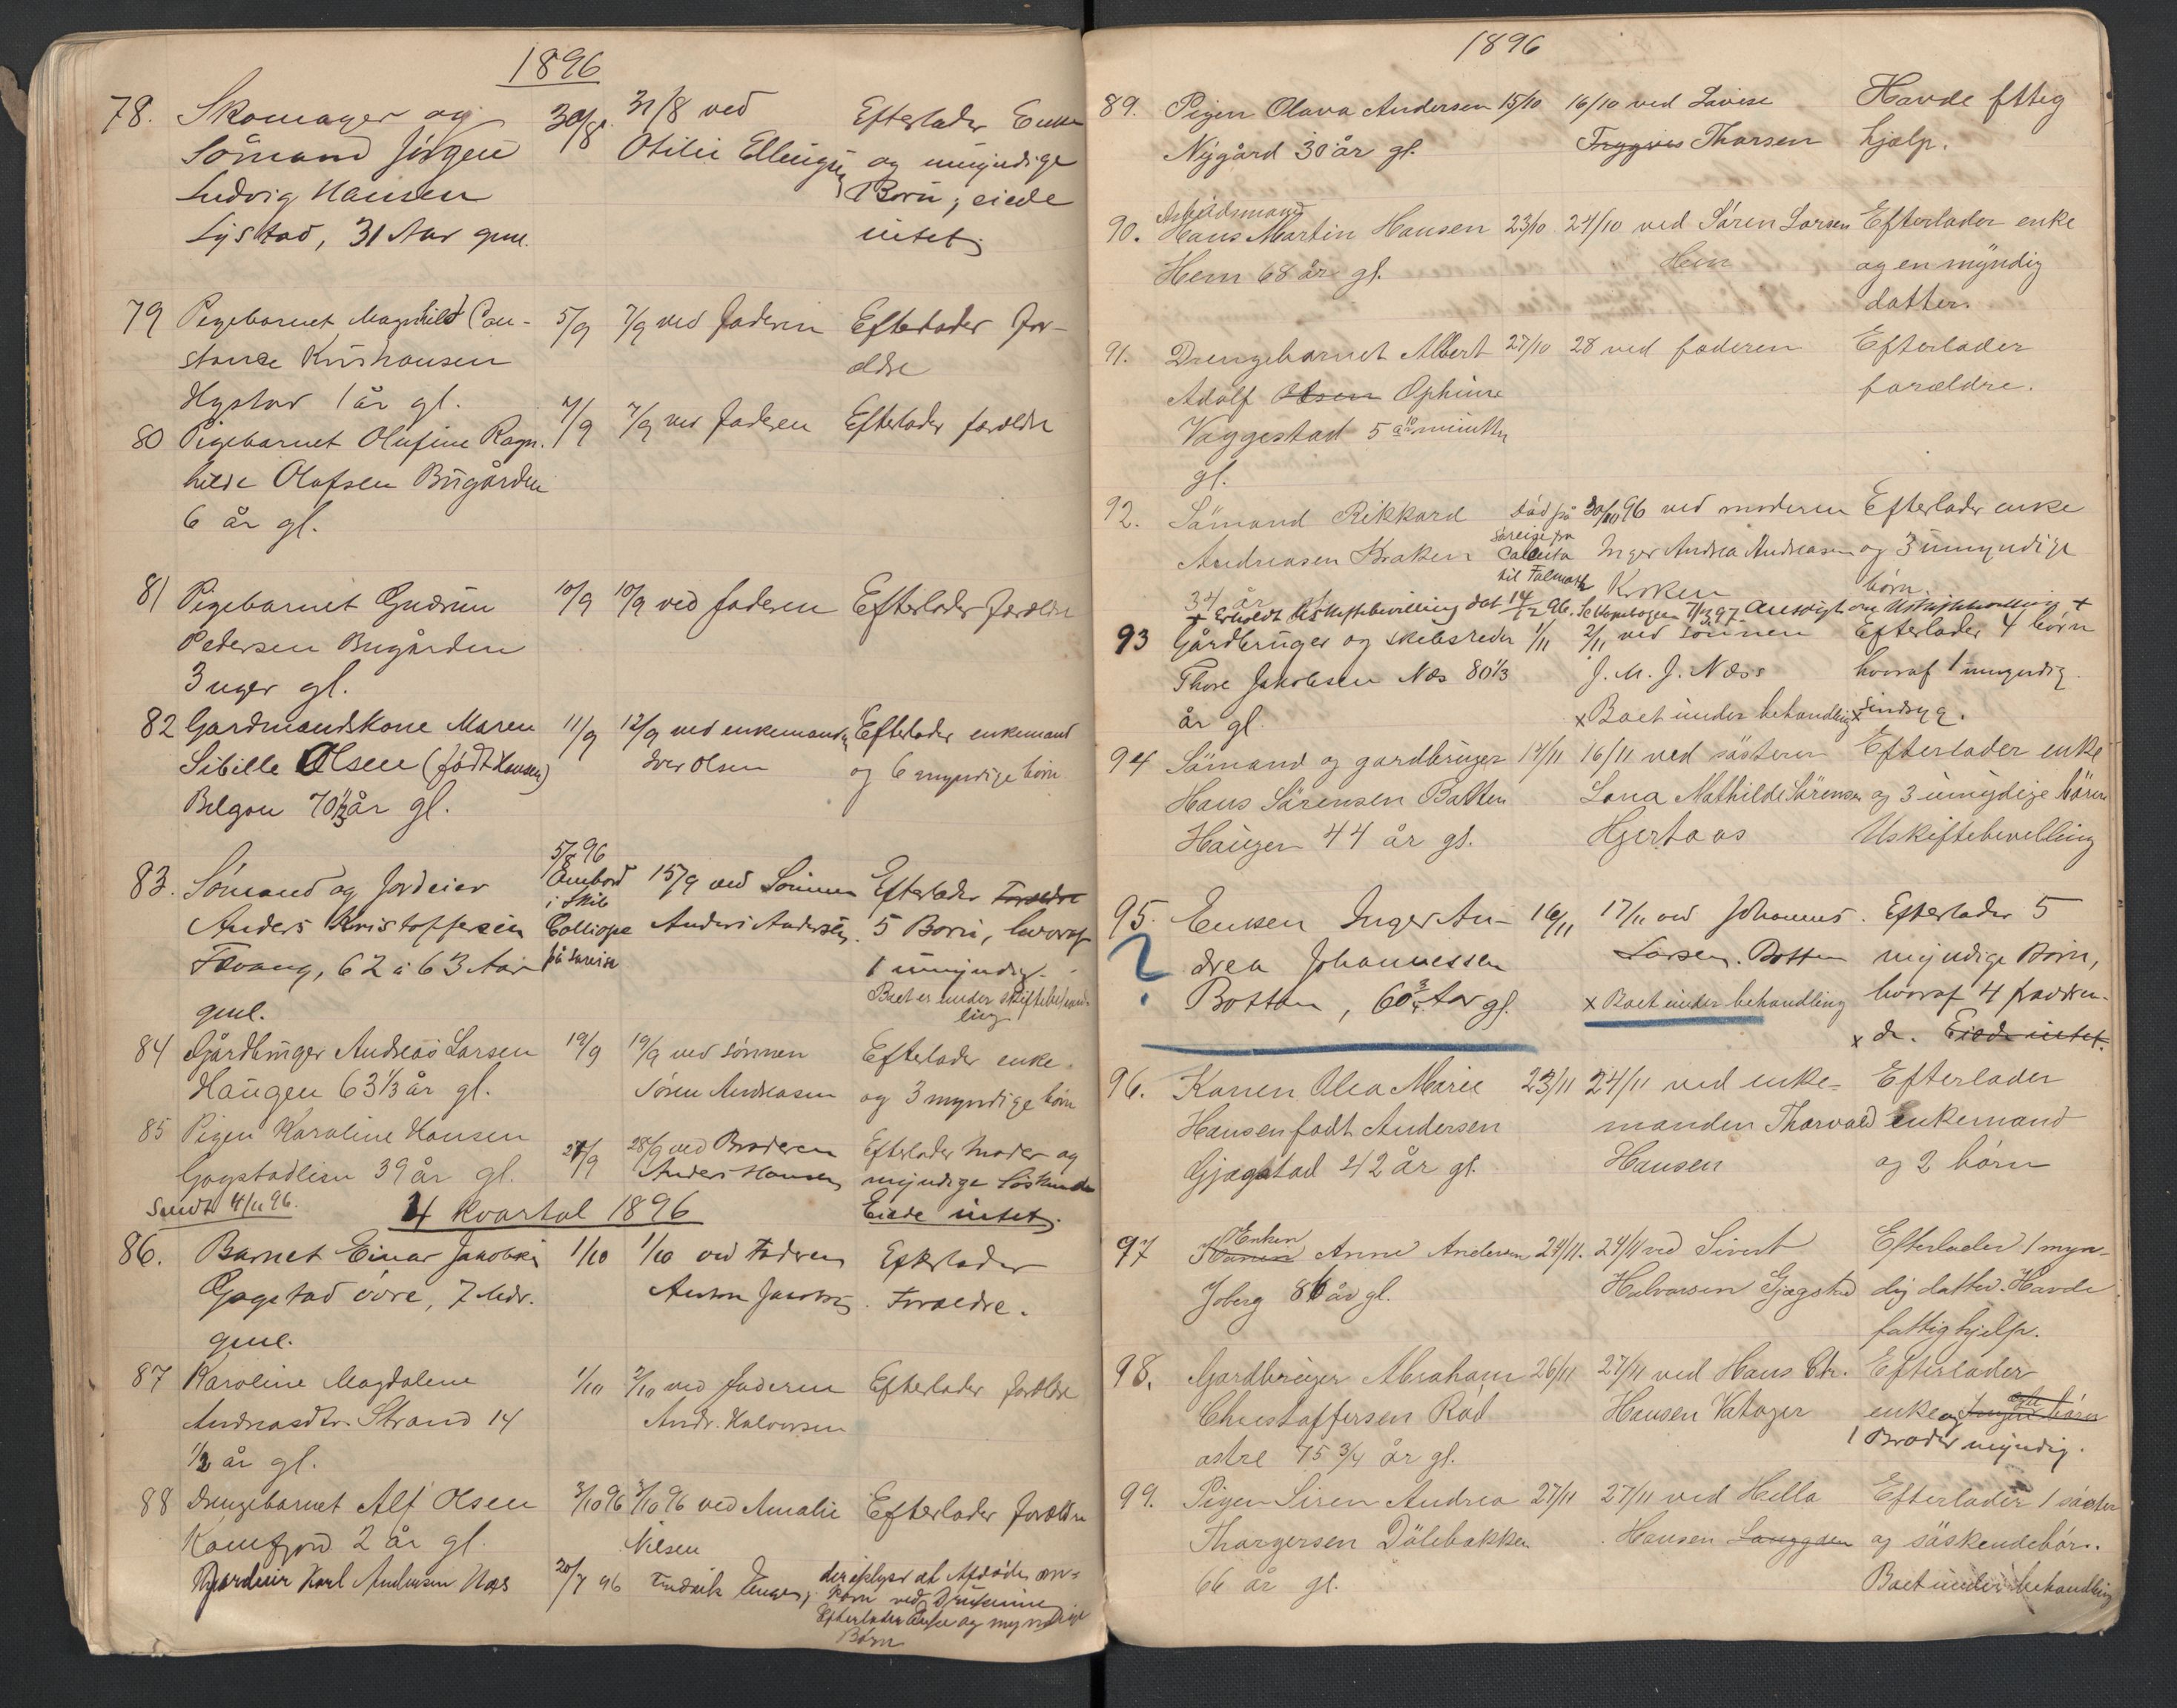 1896
78. Skomager og
Sömand Jörgen
Ludvig Hansen
Lystad, 31 Aar gml.
30/8
31/8 ved
Otilie
Efterlader Enke
og umyndige
Börn, eiede
intet
79 Pigebarnet Magnhild Con-
stance
1 år gl.
5/9
7/9 ved faderen
Efterlader for-
ældre
80 Pigebarnet Olufine Ragn-
hilde Olafsen Bugården
6 år gl.
7/9
7/9 ved faderen
Efterlader forældre
81 Pigebarnet Gudrun
Pedersen Bugården
3 uger gl.
10/9
10/9 ved faderen
Efterlader forældre
82 Gardmandskone Maren
Sibille Olsen (födt Hansen)
70 1/3 år gl.
11/9
12/9 ved enkemanden
Iver Olsen
Efterlader enkemand
og 6 myndige börn
83. Sömand og Jordeier
Anders Kristoffersen
62 à 63 Aar
gml.
5/8 96
Ombord
i Skib
Calliope
på
15/9 ved Sönnen
Anders Andersen.
Efterlader Foreldre
5 Börn, hvoraf
1 umyndig.
Boet er under skiftebehand-
ling
84 Gårdbruger Andreas Larsen
Haugen 63 1/3 år gl.
19/9
19/9 ved sönnen
Sören Andreasen
Efterlader enke
og 3 myndige börn
85 Pigen Karoline Hansen
39 år gl.
27/9
28/9 ved Broderen
Anders Hansen
Efterlader Moder og
myndige Söskende
Eiede intet.
Sendt 4/11 96.
4 Kvartal 1896
86. Barnet Einar Jakobsen
Gogstad övre, 7 Mdr.
gml.
1/10
1/10 ved Faderen
Anton Jacobsen
Efterlader
Foreldre.
87 Karoline Magdalene
Andreasdtr. Strand 14
1/2 år gl.
1/10
2/10 ved faderen
Andr. Halvorsen
Efterlader forældre
88 Drengebarnet Alf Olsen
Kamfjord 2 år gl.
3/10 96
3/10 96 ved Amalie
Nilsen
Efterlader forældre
Karl Andersen Næs
20/7 96
Fredrik
der oplyser at Afdöde om-
kom ved
Efterlader Enke og myndige
Börn
1896
89. Pigen Olava Andersen
Nygård 30 år gl.
15/10
16/10 ved Lovise
Thorsen
Havde fttig
hjælp.
90. Arbeidsmand
Hans Martin Hansen
Hem 68 år gl.
23/10
24/10 ved Sören Larsen
Hem
Efterlader enke
og en myndig
datter.
91. Drengebarnet Albert
Adolf Olsen Ophine
Vaggestad 5 à 10 minutter
gl.
27/10
28 ved faderen
Efterlader
forældre.
92. Sömand Rikkard
Andreasen Kroken
34 år
död på
söreise fra
Calcuta
til Falmouth
30/10 96 ved moderen
Inger Andrea Andreasen
Kroken
Efterlader enke
og 3 umyndige
börn.
+ Erholdt Uskiftebevilling dat 14/12 96.
93 Gårdbruger og skibsreder
Thore Jakobsen Næs 80 1/3
år gl
1/11
2/11 ved sönnen
J. M. J. Næss
x Boet under behandling
Efterlader 4 börn
hvoraf 1 umyndig
x sindsyg.
94 Sömand og gardbruger
Hans Sörensen Balten
Haugen 44 år gl.
14/11
16/11 ved sösteren
Lona Mathilde Sörensen
Hjertaas
Efterlader enke
og 3 umyndige börn
Uskiftebevilling
95. Enken Inger An-
drea Johannessen
Botten, 60 3/4 Aar gl.
?
16/11
17/11 ved Johannes
Larsen. Botten
x Boet under behandling
Efterlader 5
myndige Börn,
hvoraf 4 fraværen-
x de. Eiede intet.
96. Konen Olea Marie
Hansen födt Andersen
Gjogstad 42 år gl.
23/11
24/11 ved enke-
manden Thorvald
Hansen
Efterlader
Enkemand
og 2 börn
97 Enken
Konen Anne Andersen
Joberg 86 år gl.
24/11.
24/11 ved Sivert
Halvorsen Gjogstad
Efterlader 1 myn-
dig datter. Havde
fattighjelp.
98. Gardbruger Abraham
Christoffersen Röd
östre 75 3/4 år gl.
26/11
27/11 ved Hans Chr.
Hansen
Efterlader
enke og ingen börn
1 Broder myndig.
99. Pigen Siren Andrea
Thorgersen Dölebakken
66 år gl.
27/11
27/11 ved Hella
Hansen
Efterlader 1 söster
og söskendebörn.
Boet under behandling